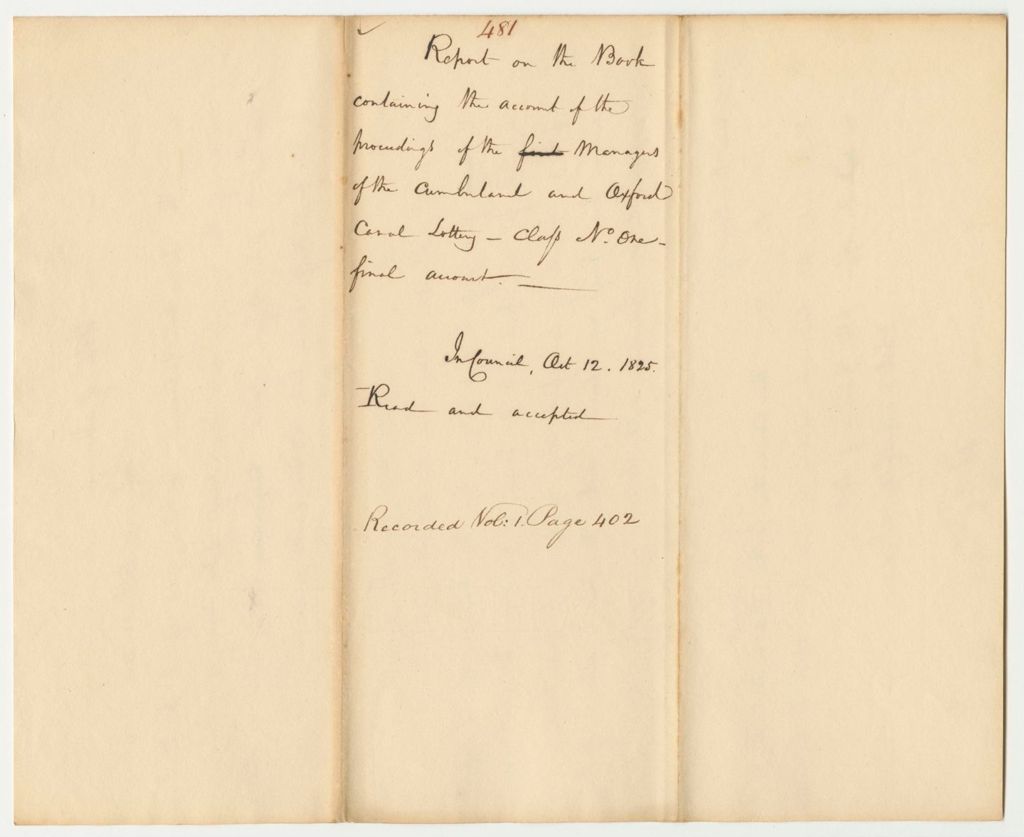 481
Report on the Book
containing the account of the
proceedings of the first Managers
of the Cumberland and Oxford
Canal Lottery - Class No. One -
final account. —
In Council, Oct 12. 1825.
Read and accepted
Recorded Vol: 1. Page 402